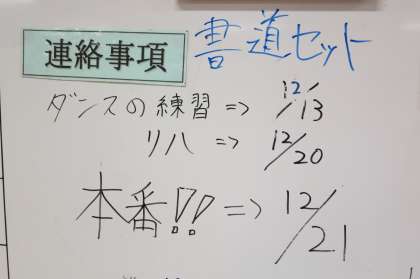 連絡事項 書道セット
ダンスの練習 => 12/13
リハ => 12/20
本番!! => 12/21